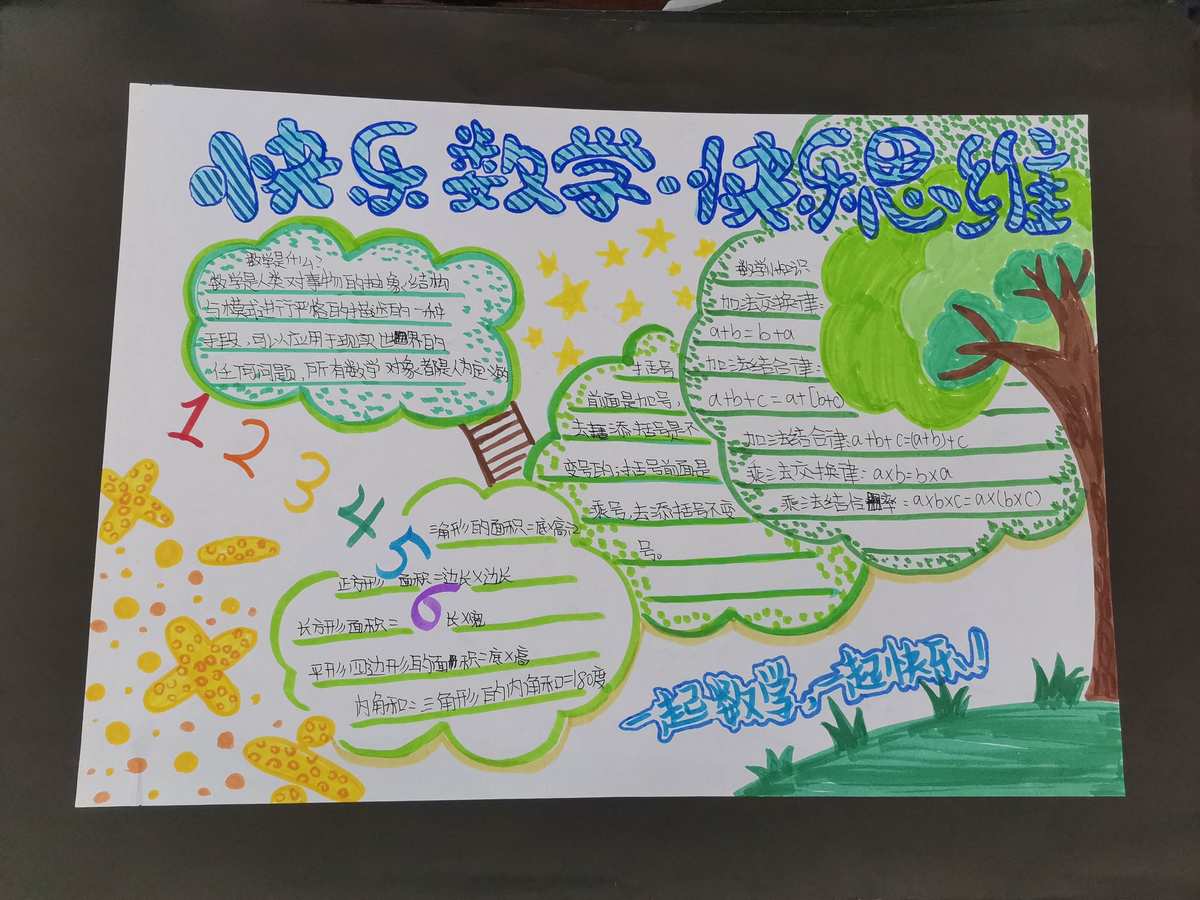 快乐数学·快乐思维
数学是什么?
数学是人类对事物的抽象结构
与模式进行严格的描述的一种
手段,可以应用于现实世界的
任何问题,所有数学对象都是人为定义的
1 2 3 4 5 6
括号
前面是加号,
去添括号是不
变号的,括号前面是
乘号,去添括号不变
号。
数学小知识
加法交换律:
a+b=b+a
加法结合律:
a+b+c=a+(b+c)
加法结合律:a+b+c=(a+b)+c
乘法交换律:a×b=b×a
乘法结合率:a×b×c=a×(b×c)
三角形的面积=底×高÷2
正方形 面积=边长×边长
长方形面积= 长×宽
平形四边形的面积=底×高
内角和=三角形的内角和=180度
一起数学,一起快乐!